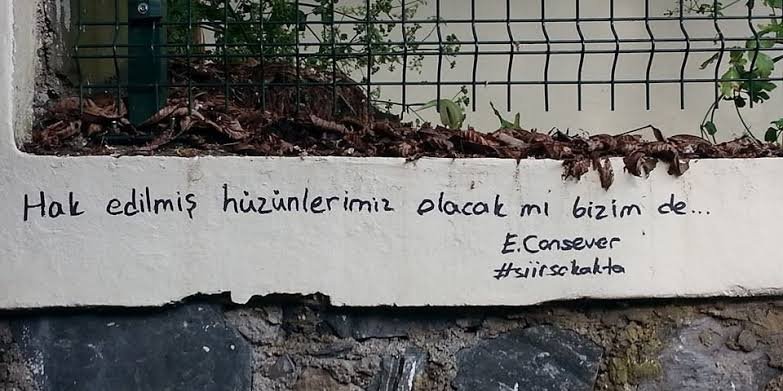 Hak edilmiş hüzünlerimiz olacak mı bizim de...
E. Cansever
#siirsokakta